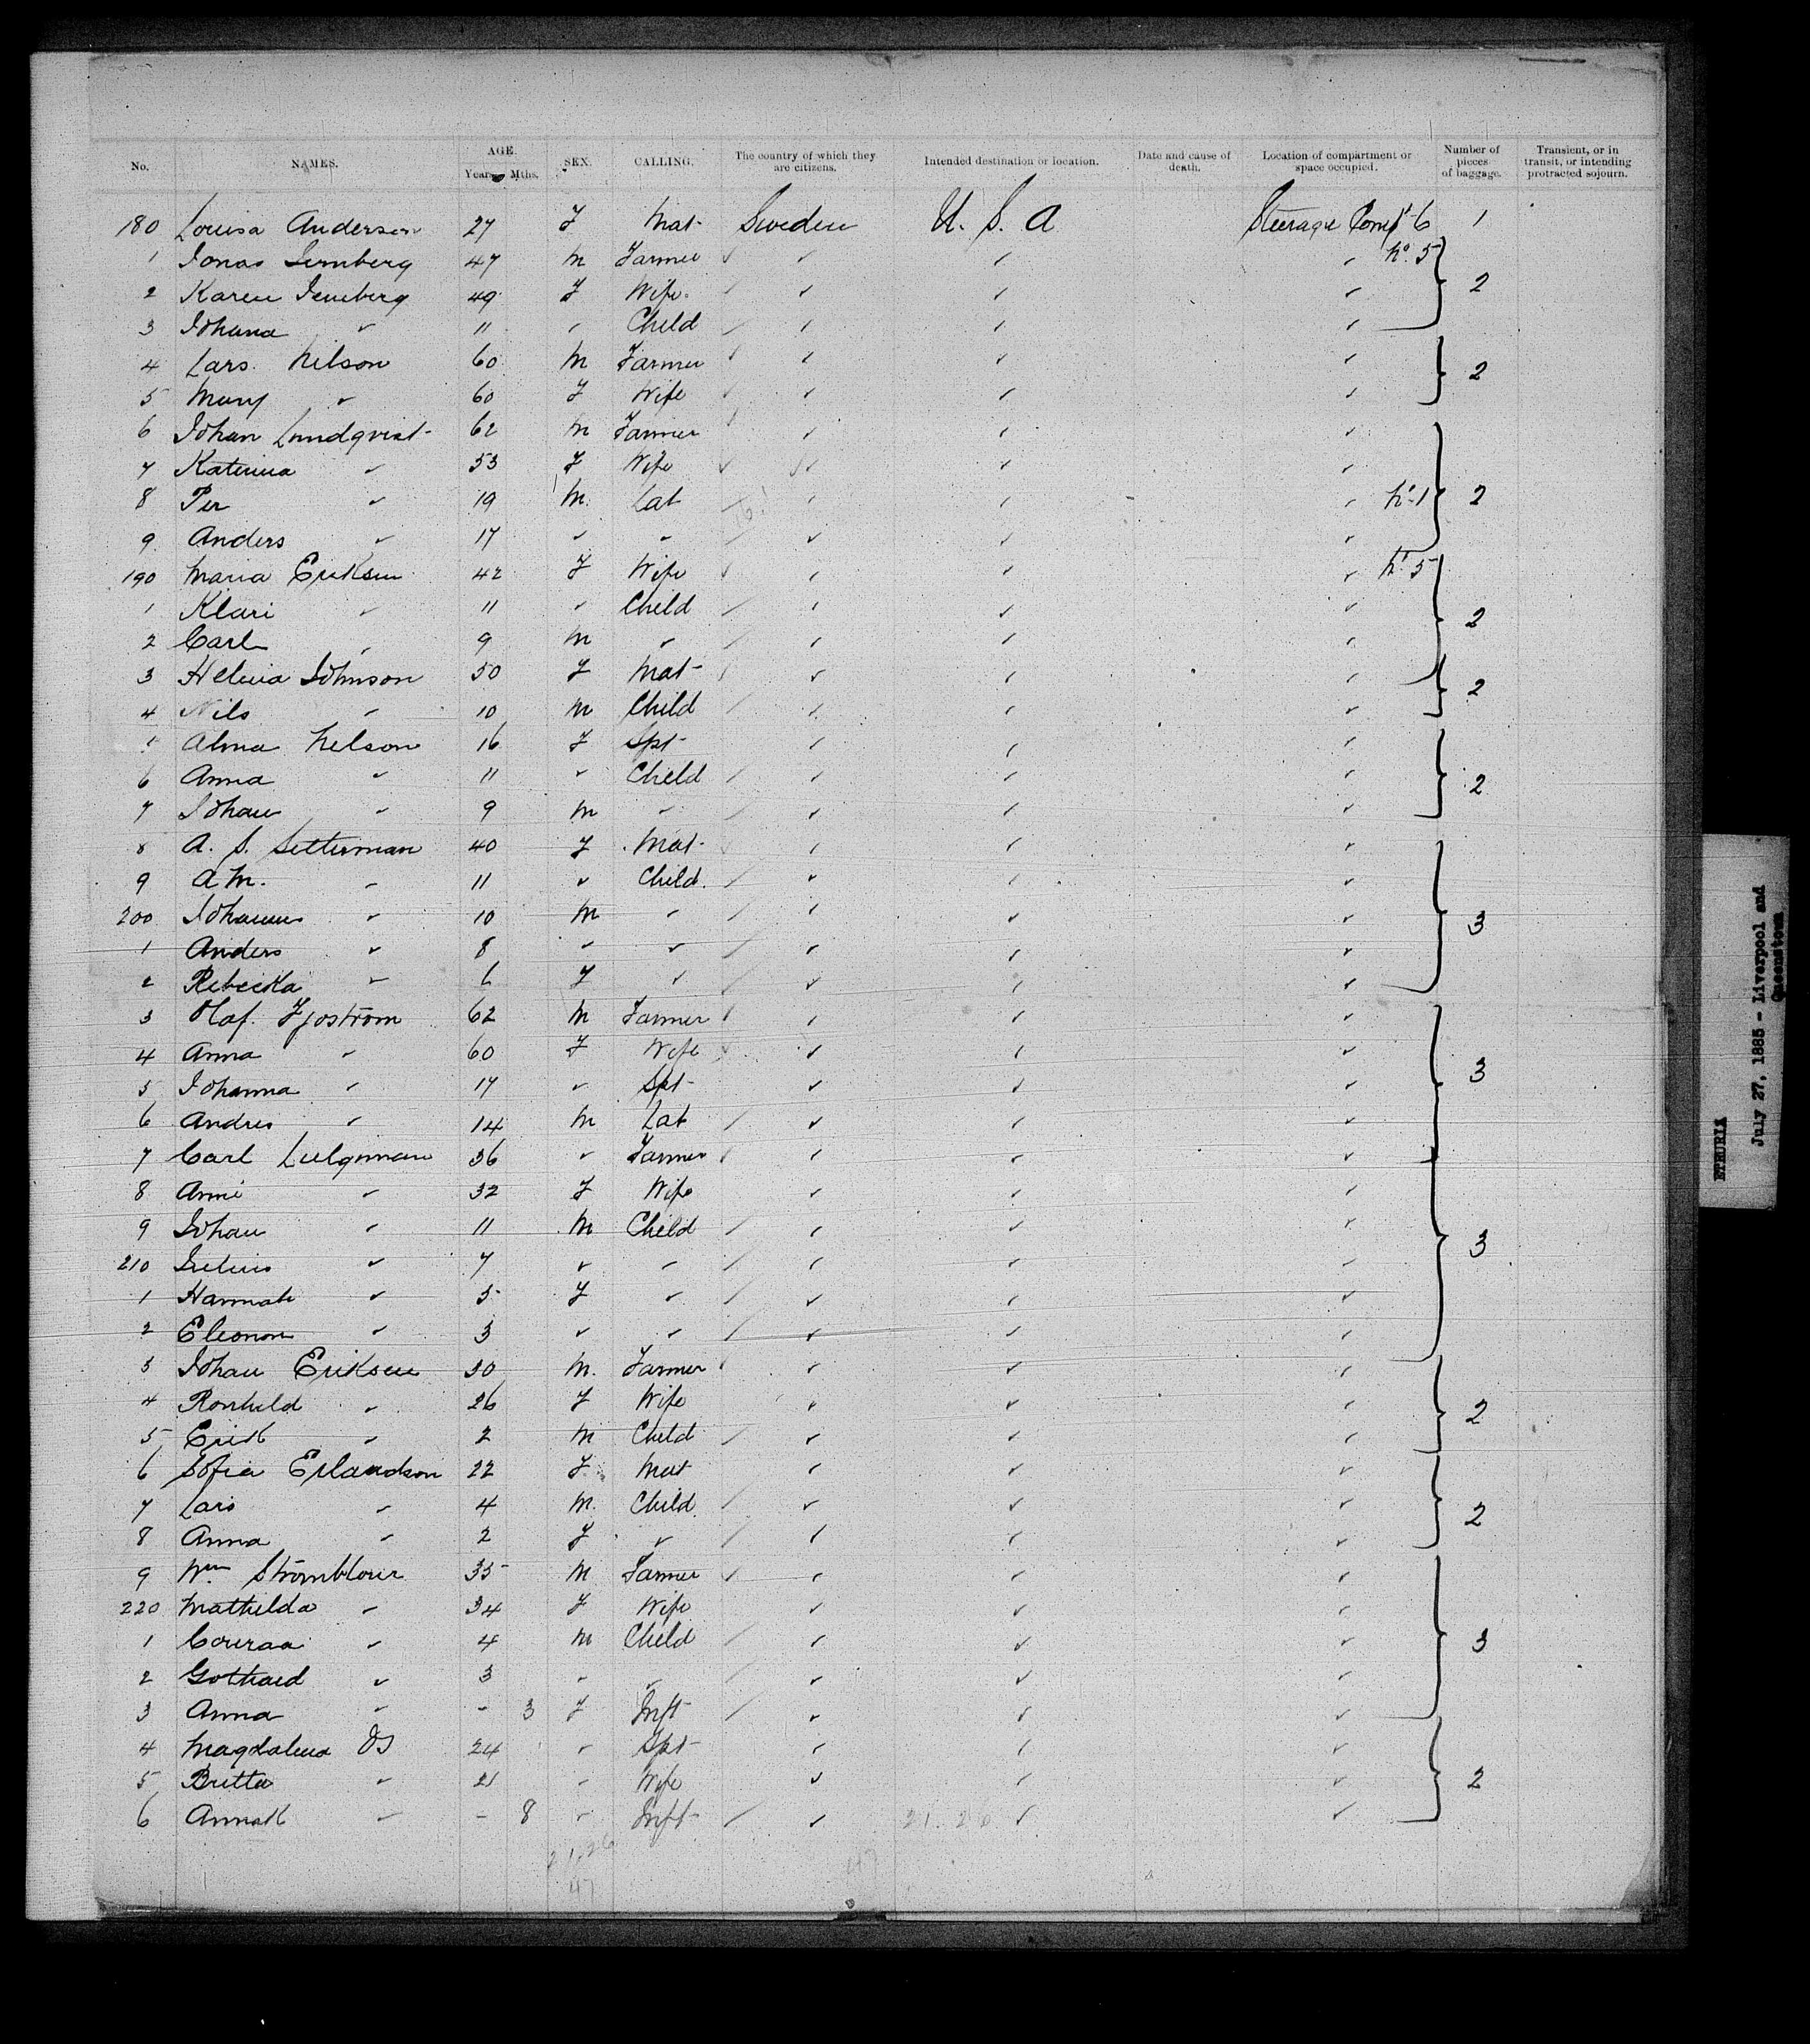 No. NAMES. AGE. Years Mths. SEX. CALLING. The country of which they are citizens. Intended destination or location. Date and cause of death. Location of compartment or space occupied. Number of pieces of baggage. Transient, or in transit, or intending protracted sojourn.
180 Louisa Anderson 27 F Mat Sweden U. S. A Steerage Compt 6 1
1 Jonas 47 M Farmer ✓ ✓ ✓ No. 5
2 Karen 49 F Wife ✓ ✓ ✓ 2
3 Johana " 11 " Child ✓ ✓ ✓
4 Lars Nelson 60 M Farmer ✓ ✓ ✓
5 Mary " 60 F Wife ✓ ✓ ✓ 2
6 Johan Lundqvist 62 M Farmer ✓ ✓ ✓
7 Katerina " 53 F Wife ✓ ✓ ✓
8 Per " 19 M Lab ✓ ✓ ✓ No. 1 2
9 Anders " 17 " " ✓ ✓ ✓
190 Maria Eriksen 42 F Wife ✓ ✓ ✓ No. 5
1 Klari " 11 " Child ✓ ✓ ✓ 2
2 Carl " 9 M " ✓ ✓ ✓
3 Helena Johnson 50 F Mat ✓ ✓ ✓
4 Nils " 10 M Child ✓ ✓ ✓ 2
5 Alma Nelson 16 F Spt ✓ ✓ ✓
6 Anna " 11 " Child ✓ ✓ ✓ 2
7 Johan " 9 M " ✓ ✓ ✓
8 A. S. Setterman 40 F Mat ✓ ✓ ✓
9 A M. " 11 " Child ✓ ✓ ✓
200 Johannes " 10 M " ✓ ✓ ✓ 3
1 Anders " 8 " " ✓ ✓ ✓
2 Rebecka " 6 F " ✓ ✓ ✓
3 Olaf Fjoström 62 M Farmer ✓ ✓ ✓
4 Anna " 60 F Wife ✓ ✓ ✓
5 Johanna " 17 " Spt ✓ ✓ ✓ 3
6 Andres " 14 M Lab ✓ ✓ ✓
7 Carl 36 " Farmer ✓ ✓ ✓
8 Anni " 32 F Wife ✓ ✓ ✓
9 Johan " 11 M Child ✓ ✓ ✓
210 " 7 " " ✓ ✓ ✓ 3
1 Hannah " 5 F " ✓ ✓ ✓
2 Eleonor " 3 " " ✓ ✓ ✓
3 Johan Eriksen 30 M. Farmer ✓ ✓ ✓
4 Ronhild " 26 F Wife ✓ ✓ ✓ 2
5 Erik " 2 M Child ✓ ✓ ✓
6 Sofia Erlandson 22 F Mat ✓ ✓ ✓
7 Lars " 4 M. Child ✓ ✓ ✓ 2
8 Anna " 2 F " ✓ ✓ ✓
9 Wm 35 M Farmer ✓ ✓ ✓
220 Mathilda " 34 F Wife ✓ ✓ ✓
1 " 4 M Child ✓ ✓ ✓ 3
2 Gothard " 3 " " ✓ ✓ ✓
3 Anna " - 3 F Inft ✓ ✓ ✓
4 Magdalena 24 " Spt ✓ ✓ ✓
5 Britta " 21 " Wife ✓ ✓ ✓ 2
6 " - 8 " Inft ✓ ✓ 21.26 ✓
21.26
47
47
ETRURIA
July 27, 1885 - Liverpool and Queenstown